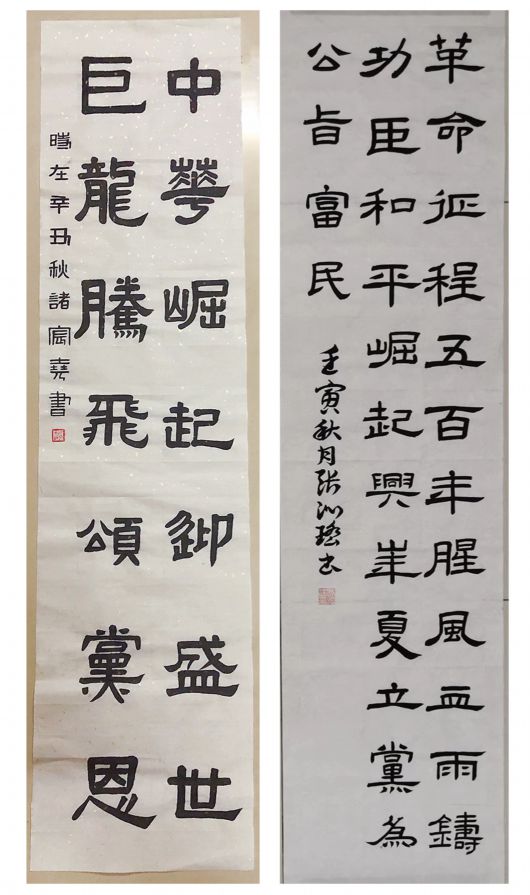 中華崛起卸盛世
巨龍騰飛頌黨恩
時在辛丑秋諸宸堯書
革命征程五百年腥風血雨鑄
功臣和平崛起興華夏立黨為
公旨富民
壬寅秋月張沁瑤书